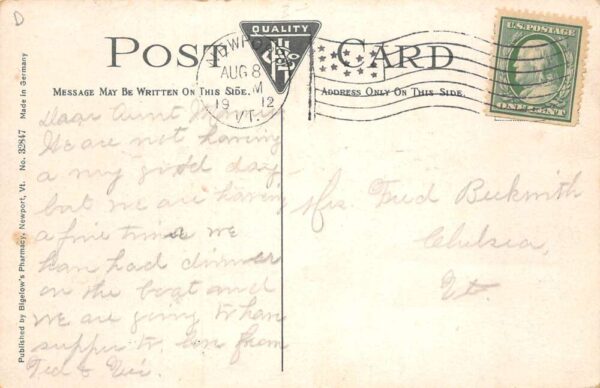 D
QUALITY
POST CARD
MESSAGE MAY BE WRITTEN ON THIS SIDE.
ADDRESS ONLY ON THIS SIDE.
NEWPORT
AUG 8
M
19 12
VT.
U.S. POSTAGE
ONE CENT
Published by Bigelow's Pharmacy, Newport, Vt. No. 32847 Made in Germany
Dear Aunt
We are not having
a my good day
but we are having
a fine time we
han had dinner
on the boat and
we are going to han
supper to from
Ted &
Mrs. Fred Beckwith
Chelsea,
Vt.